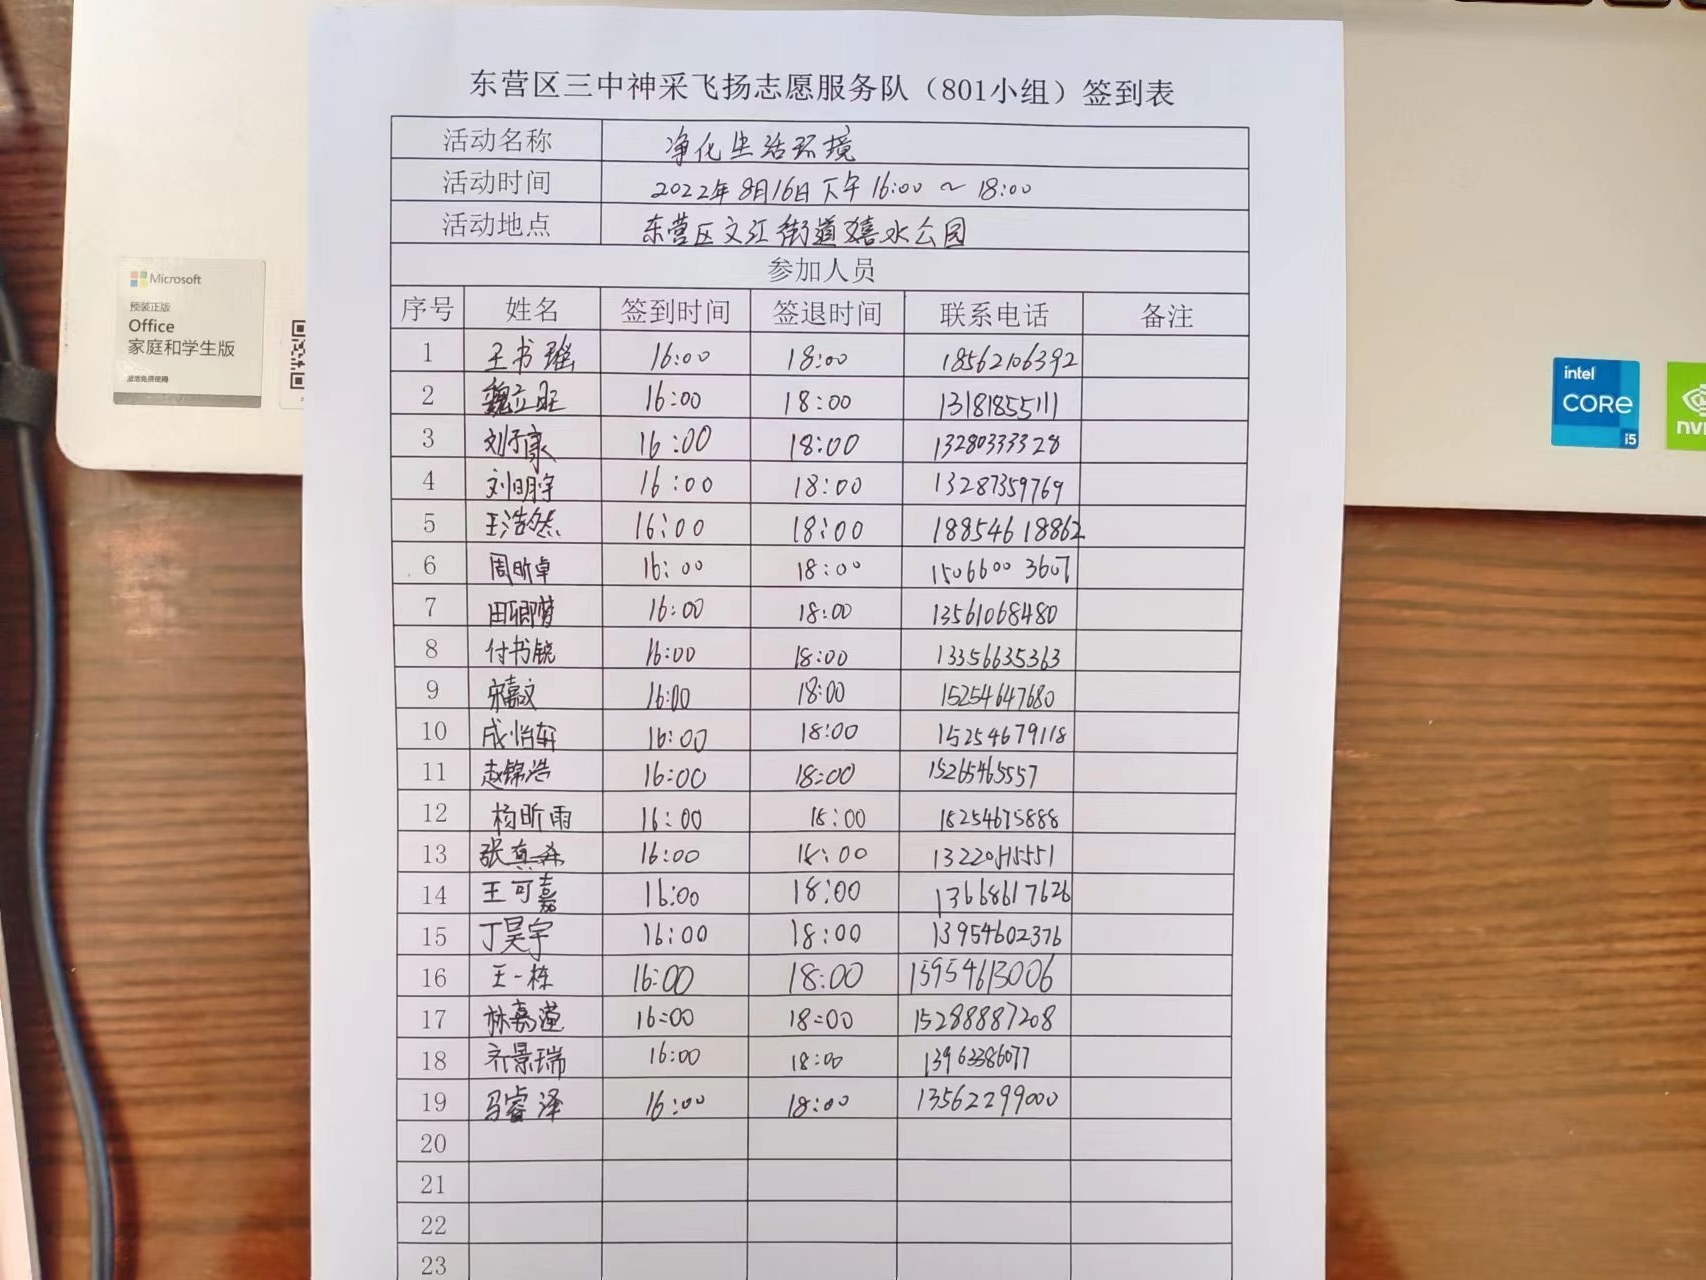 东营区三中神采飞扬志愿服务队（801小组）签到表
活动名称 净化生活环境
活动时间 2022年8月16日下午16:00～18:00
活动地点 东营区文汇街道嬉水公园
参加人员
序号 姓名 签到时间 签退时间 联系电话 备注
1 王书瑶 16:00 18:00 18562106392
2 魏立旺 16:00 18:00 13181855111
3 刘子康 16:00 18:00 13280333328
4 刘明宇 16:00 18:00 13287359769
5 王浩然 16:00 18:00 18854618862
6 周昕卓 16:00 18:00 15066003607
7 田卿 16:00 18:00 13561068480
8 付书锐 16:00 18:00 13356635363
9 宋嘉文 16:00 18:00 15254647680
10 成怡轩 16:00 18:00 15254679118
11 赵锦浩 16:00 18:00 15265465557
12 杨昕雨 16:00 18:00 18254675888
13 张 16:00 18:00
14 王可嘉 16:00 18:00 13668617626
15 丁昊宇 16:00 18:00 13954602376
16 王一栋 16:00 18:00 15954613006
17 林嘉滢 16:00 18:00 15288887208
18 齐景瑞 16:00 18:00 13963386077
19 马睿泽 16:00 18:00 13562299000
20
21
22
23
Microsoft
预装正版
Office
家庭和学生版
intel
CORE
i5